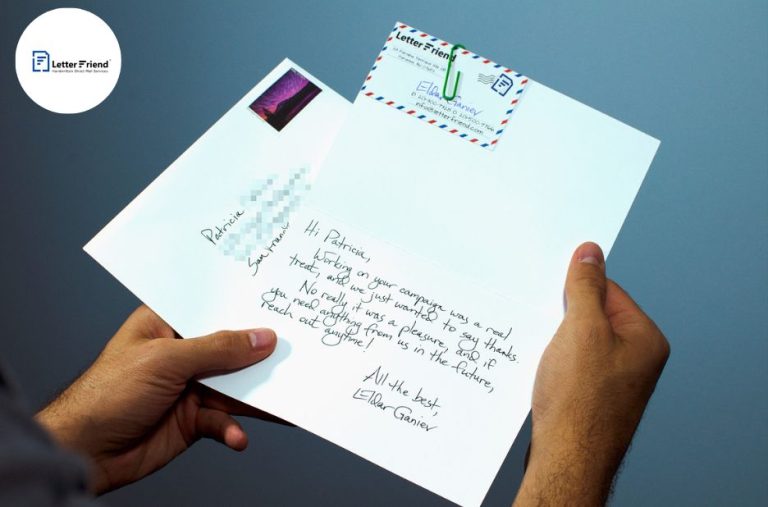 Letter Friend
Handwritten Direct Mail Services
Letter Friend
Eldar Ganiev
info@letterfriend.com
Patricia
San Franc
Hi Patricia,
Working on your campaign was a real
treat, and we just wanted to say thanks.
No really, it was a pleasure, and if
you need anything from us in the future,
reach out anytime!
All the best,
Eldar Ganiev